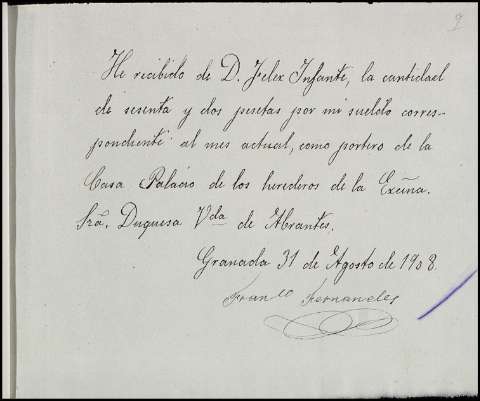 9
He recibido de D. Felex Infante, la cantidad
de sesenta y dos pesetas por mi sueldo corres-
pondiente al mes actual, como portero de la
Casa Palacio de los herederos de la Excma.
Sra. Duquesa Vda de Abrantes.
Granada 31 de Agosto de 1908.
Franco Fernandes